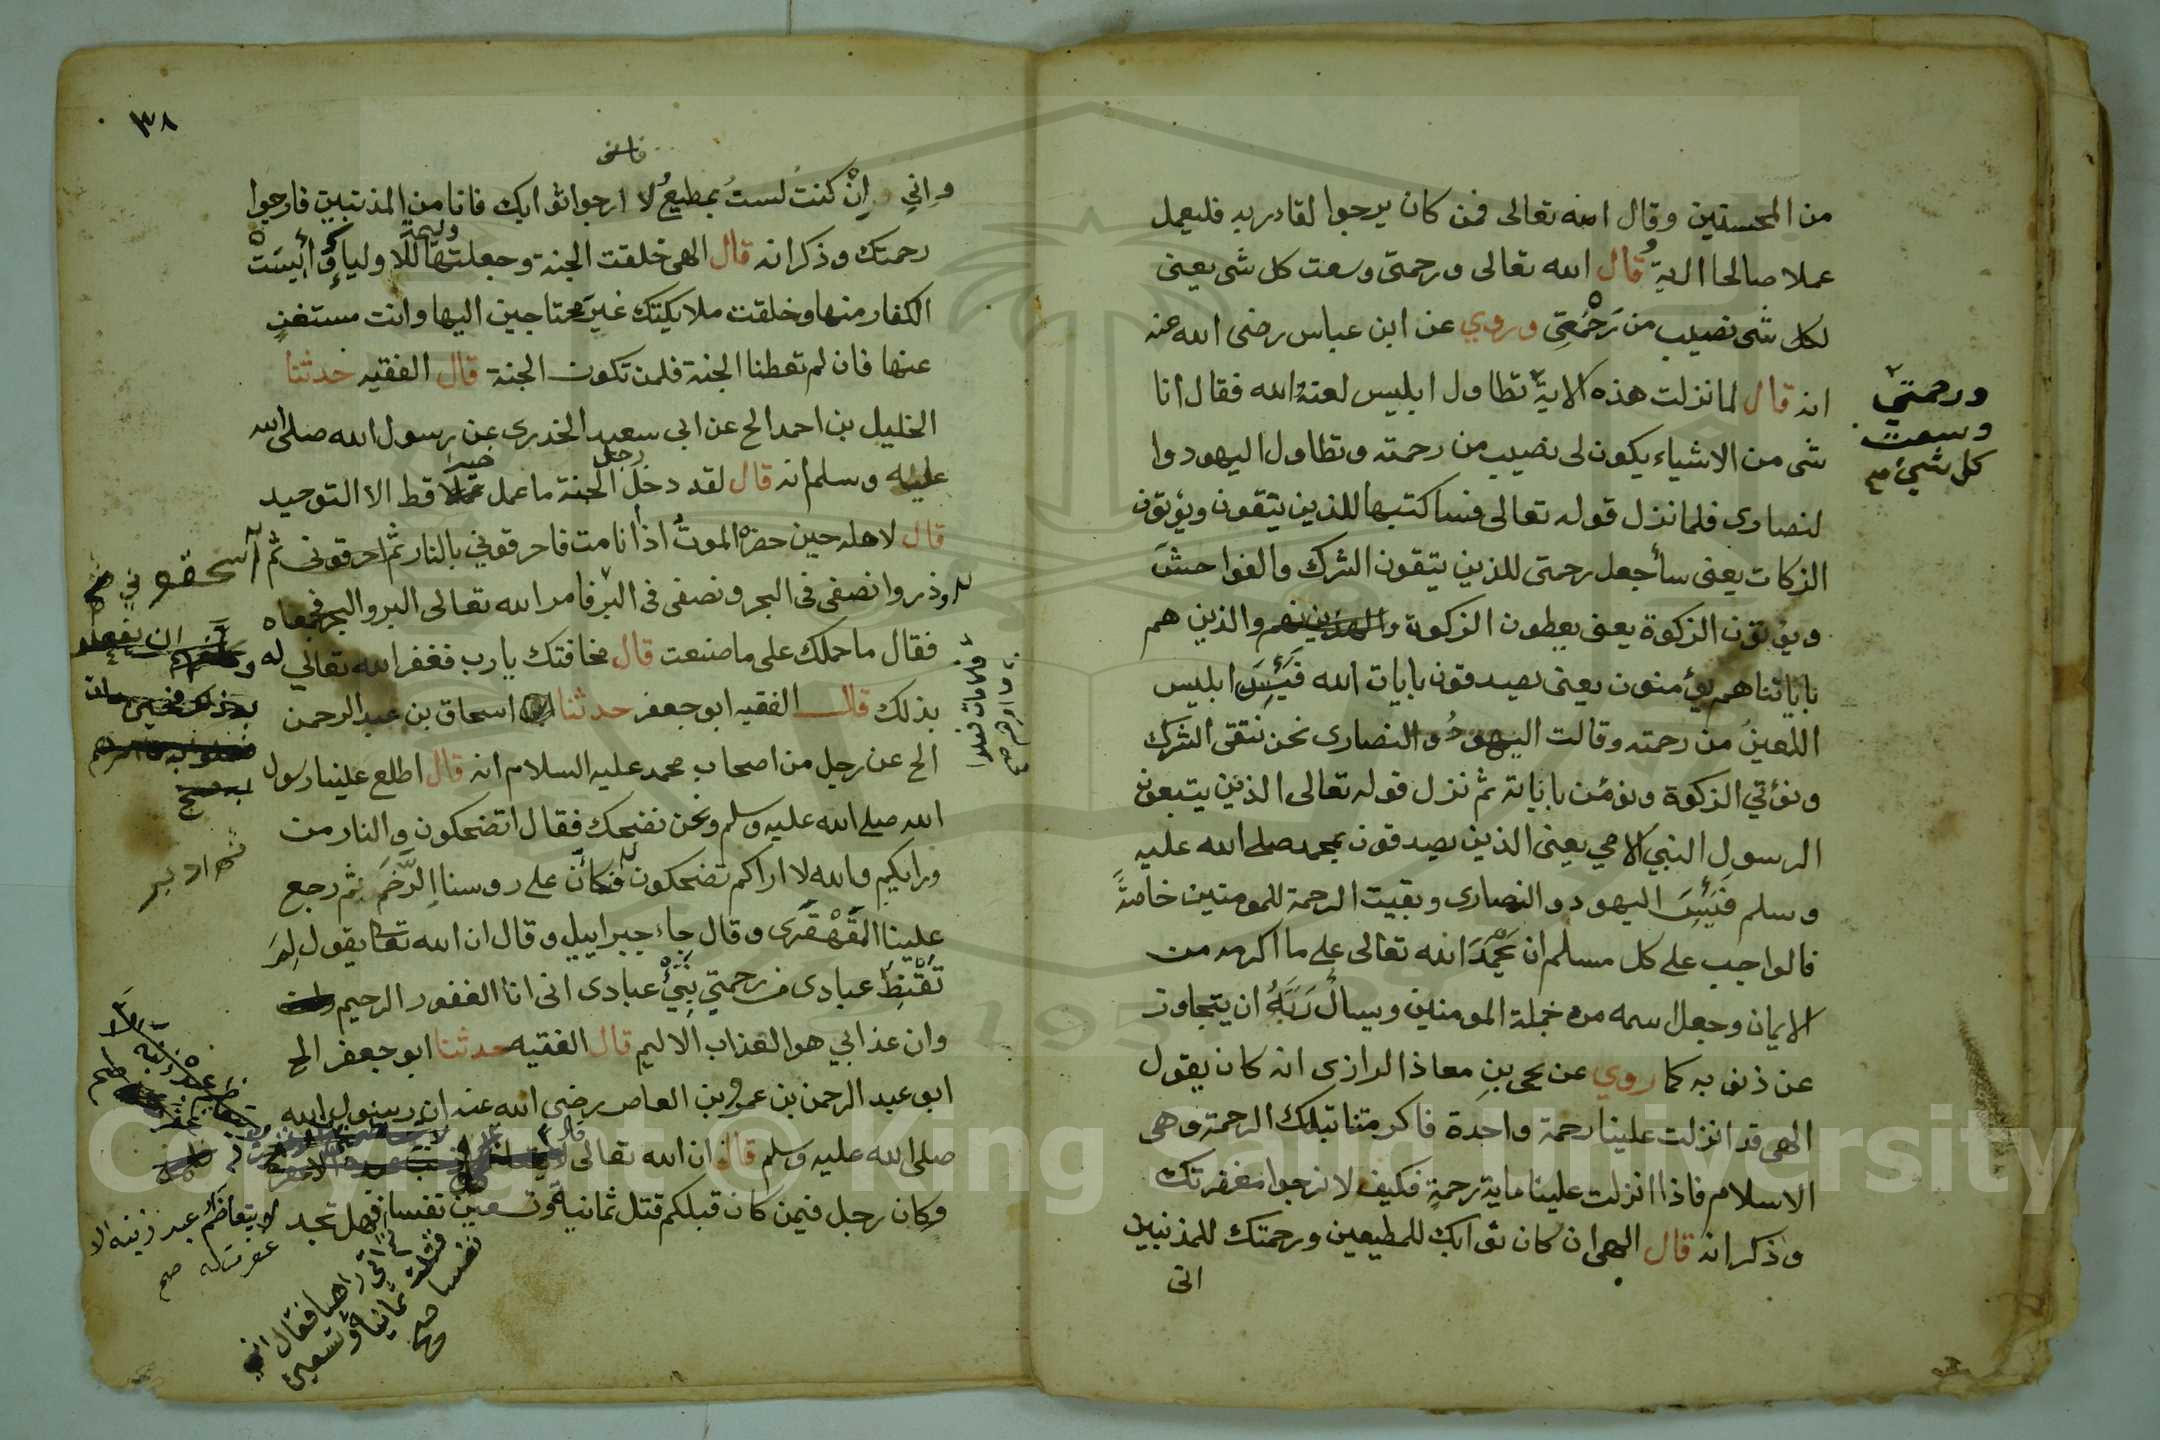 من المحسنين وقال الله تعالى فمن كان يرجوا لقاء ربه فليعمل
عملا صالحا الاية قال الله تعالى ورحمتي وسعت كل شى يعنى
لكل شى نصيب من رحمتي وروي عن ابن عباس رضى الله عنه
انه قال لما نزلت هذه الاية تطاول ابليس لعنة الله فقال انا
شى من الاشياء يكون لى نصيب من رحمته وتطاول اليهود وا
لنصارى فلما نزل قوله تعالى فساكتبها للذين يتقون ويؤتون
الزكات يعنى سأجعل رحمتى للذين يتقون الشرك والفواحش
ويؤتون الزكوة يعنى يعطون الزكوة والذين هم
باياتنا هم يؤمنون يعنى يصدقون بايات الله فيئس ابليس
اللعين من رحمته وقالت اليهود والنصارى نحن نتقى الشرك
ونؤتي الزكوة ونؤمن باياته ثم نزل قوله تعالى الذين يتبعون
الرسول النبي الامي يعنى الذين يصدقون بمحمد صلى الله عليه
وسلم فيئس اليهود والنصارى وبقيت الرحمة للمومنين خاصة
فالواجب على كل مسلم ان يحمد الله تعالى على ما اكرمه من
الايمان وجعل اسمه من جملة المومنين ويسال ربه ان يتجاوز
عن ذنوبه كما روي عن يحيى بن معاذ الرازى انه كان يقول
الهى قد انزلت علينا رحمة واحدة فاكرمتنا بتلك الرحمة وهى
الاسلام فاذا انزلت علينا ماية رحمة فكيف لا نرجوا مغفرتك
وذكر انه قال الهى ان كان ثوابك للمطيعين ورحمتك للمذنبين
انى
ورحمتي
وسعت
كل شيئ صح
٣٨
وانى ان كنت لست بمطيع لا ارجوا ثوابك فانا من المذنبين فارجوا
رحمتك وذكر انه قال الهى خلقت الجنة وجعلتها وليمة لاوليائك وأيست
الكفار منها وخلقت ملايكتك غير محتاجين اليها وانت مستغن
عنها فان لم تعطنا الجنة فلمن تكون الجنة قال الفقيه حدثنا
الخليل بن احمد الخ عن ابي سعيد الخدرى عن رسول الله صلى الله
عليه وسلم انه قال لقد دخل رجل الجنة ما عمل خيرا قط الا التوحيد
قال لاهله حين حضره الموت اذا انا مت فاحرقوني بالنار ثم احرقونى ثم آسحقوني صح
وذروا نصفى فى البحر ونصفى فى البر فامر الله تعالى البر والبحر فجمعاه
فقال ما حملك على ما صنعت قال مخافتك يا رب فغفر الله تعالي له
بذلك قال الفقيه ابو جعفر حدثنا اسحاق بن عبد الرحمن
الخ عن رجل من اصحاب محمد عليه السلام انه قال اطلع علينا رسول
الله صلى الله عليه وسلم ونحن نضحك فقال اتضحكون والنار من
ورايكم والله لا اراكم تضحكون فكان على روسنا الرخم ثم رجع
علينا القهقرى وقال جاء جبراييل وقال ان الله تعا يقول لم
تقنط عبادى من رحمتي نبئ عبادى انى انا الغفور الرحيم
وان عذابي هو العذاب الاليم قال الفقيه حدثنا ابو جعفر الخ
ابو عبد الرحمن بن عمرو بن العاص رضى الله عنه ان رسول الله
صلى الله عليه وسلم قال ان الله تعالى
وكان رجل فيمن كان قبلكم قتل ثمانية وتسعين نفسا فهل تجد
لا يتعاظم عبد ذنبه الا
غفرت له صح
راهبا فقال اني
قتلت ثمانية وتسعين
نفسا صح
Copyright © King Saud University
1957